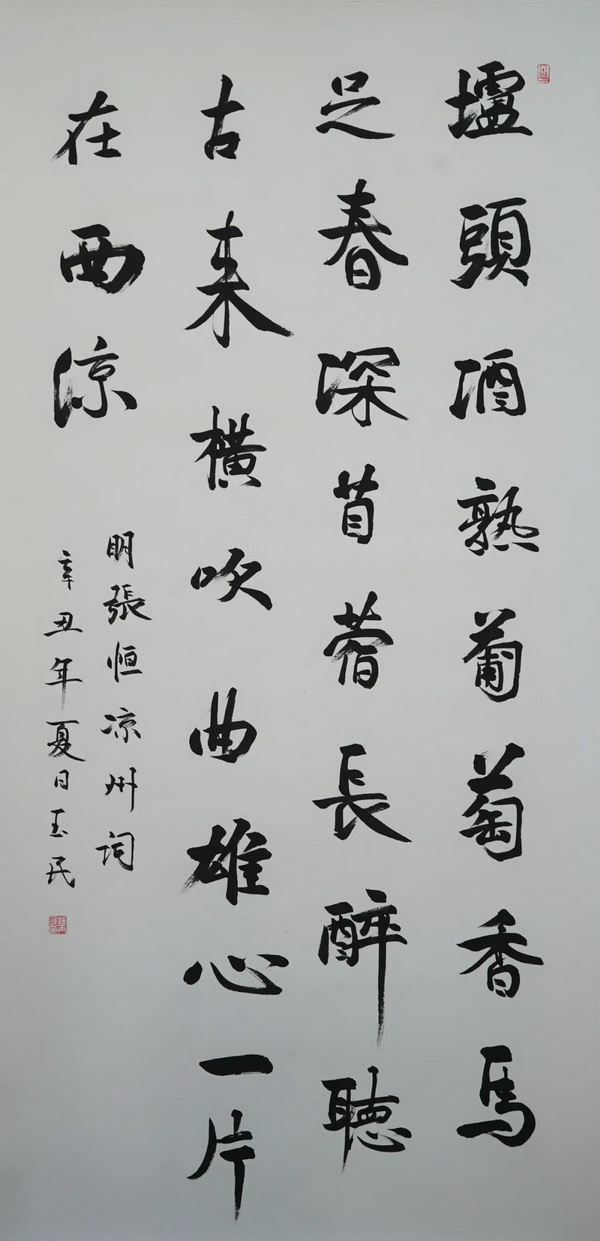 壚頭酒熟葡萄香馬
足春深苜蓿長醉聽
古来橫吹曲雄心一片
在西凉
明張恒凉州詞
辛丑年夏日玉民